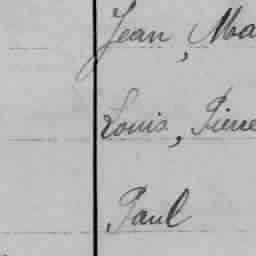 Jean, Ma
Louis, Pierre
Paul